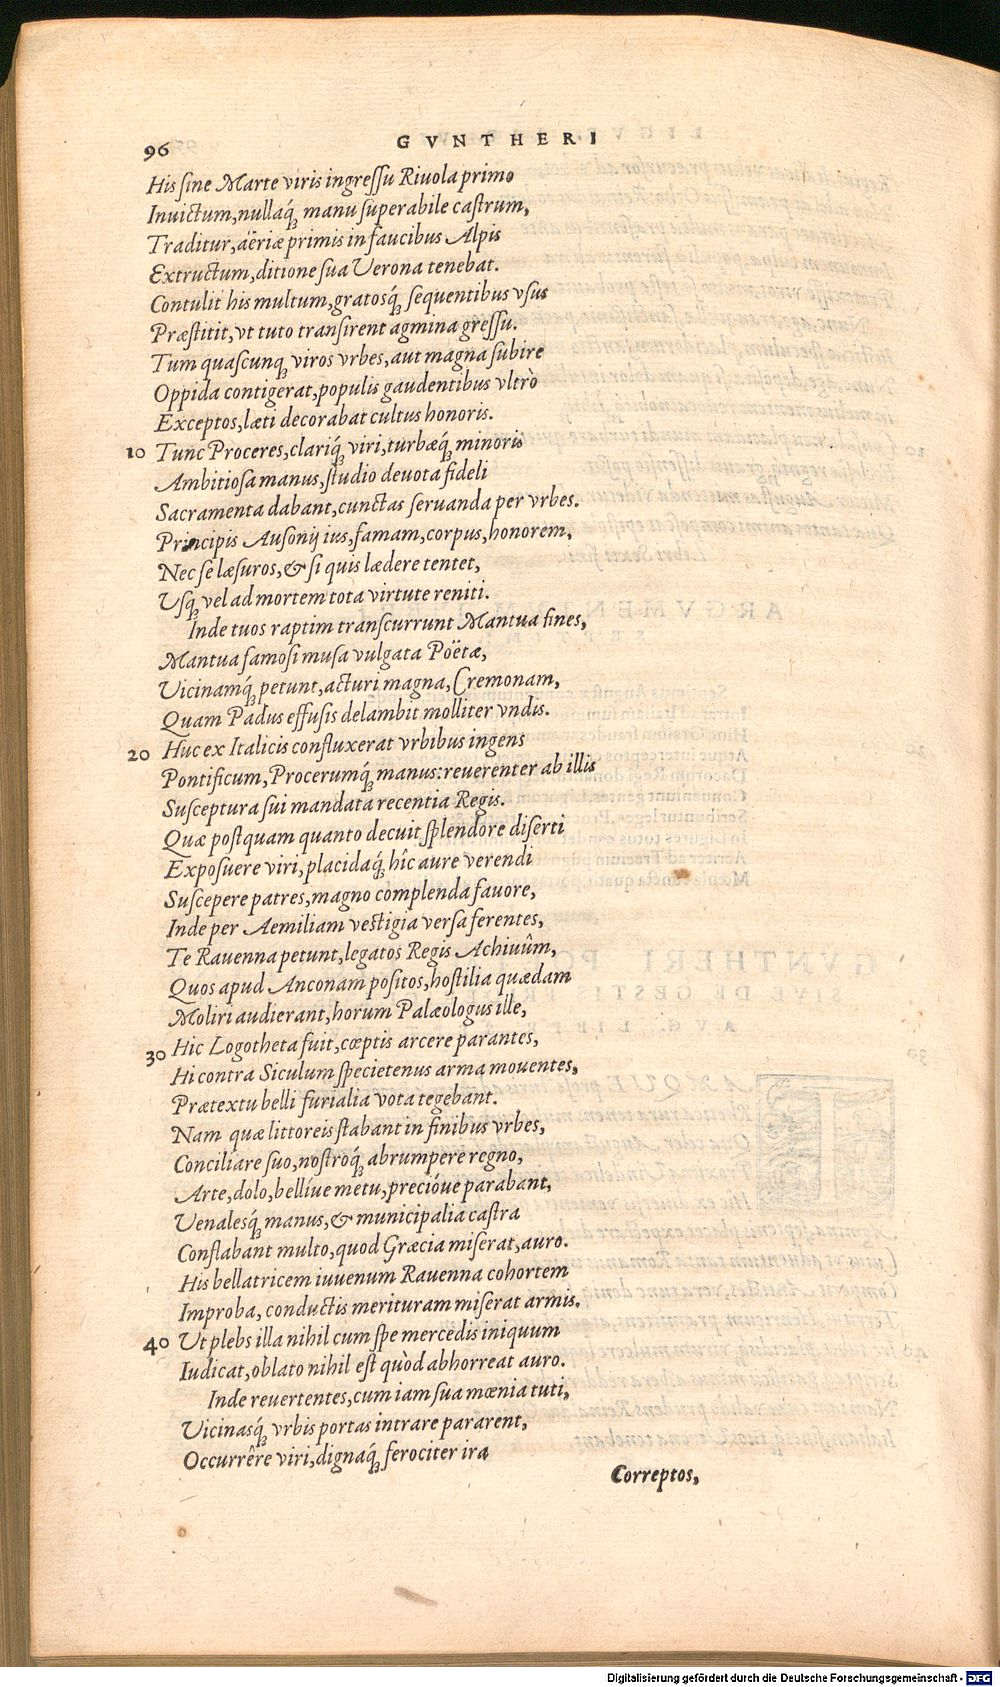 96 GVNTHERI
His sine Marte viris ingressu Riuola primo
Inuictum, nullaq́ꝫ manu superabile castrum,
Traditur, aëriæ primis in faucibus Alpis
Extructum, ditione sua Verona tenebat.
Contulit his multum, gratosq́ꝫ sequentibus vsus
Præstitit, vt tuto transirent agmina gressu.
Tum quascunqꝫ viros vrbes, aut magna subire
Oppida contigerat, populis gaudentibus vltrò
Exceptos, læti decorabat cultus honoris.
10 Tunc Proceres, clariq́ꝫ viri, turbæq́ꝫ minoris
Ambitiosa manus, studio deuota fideli
Sacramenta dabant, cunctas seruanda per vrbes.
Principis Ausonij ius, famam, corpus, honorem,
Nec se læsuros, & si quis lædere tentet,
Vsqꝫ vel ad mortem tota virtute reniti.
Inde tuos raptim transcurrunt Mantua fines,
Mantua famosi musa vulgata Poëtæ,
Vicinamq́ꝫ petunt, acturi magna, Cremonam,
Quam Padus effusis delambit molliter vndis.
20 Huc ex Italicis confluxerat vrbibus ingens
Pontificum, Procerumq́ꝫ manus: reuerenter ab illis
Susceptura sui mandata recentia Regis.
Quæ postquam quanto decuit splendore diserti
Exposuere viri, placidaq́ꝫ hîc aure verendi
Suscepere patres, magno complenda fauore,
Inde per Aemiliam vestigia versa ferentes,
Te Rauenna petunt, legatos Regis Achiuûm,
Quos apud Anconam positos, hostilia quædam
Moliri audierant, horum Palæologus ille,
30 Hic Logotheta fuit, cœptis arcere parantes,
Hi contra Siculum specietenus arma mouentes,
Prætextu belli furialia vota tegebant.
Nam quæ littoreis stabant in finibus vrbes,
Conciliare suo, nostroq́ꝫ abrumpere regno,
Arte, dolo, bellíue metu, precióue parabant,
Venalesq́ꝫ manus, & municipalia castra
Conflabant multo, quod Græcia miserat, auro.
His bellatricem iuuenum Rauenna cohortem
Improba, conductis merituram miserat armis.
40 Vt plebs illa nihil cum spe mercedis iniquum
Iudicat, oblato nihil est quòd abhorreat auro.
Inde reuertentes, cum iam sua mœnia tuti,
Vicinasq́ꝫ vrbis portas intrare pararent,
Occurrêre viri, dignaq́ꝫ ferociter ira
Correptos,
Digitalisierung gefördert durch die Deutsche Forschungsgemeinschaft - DFG